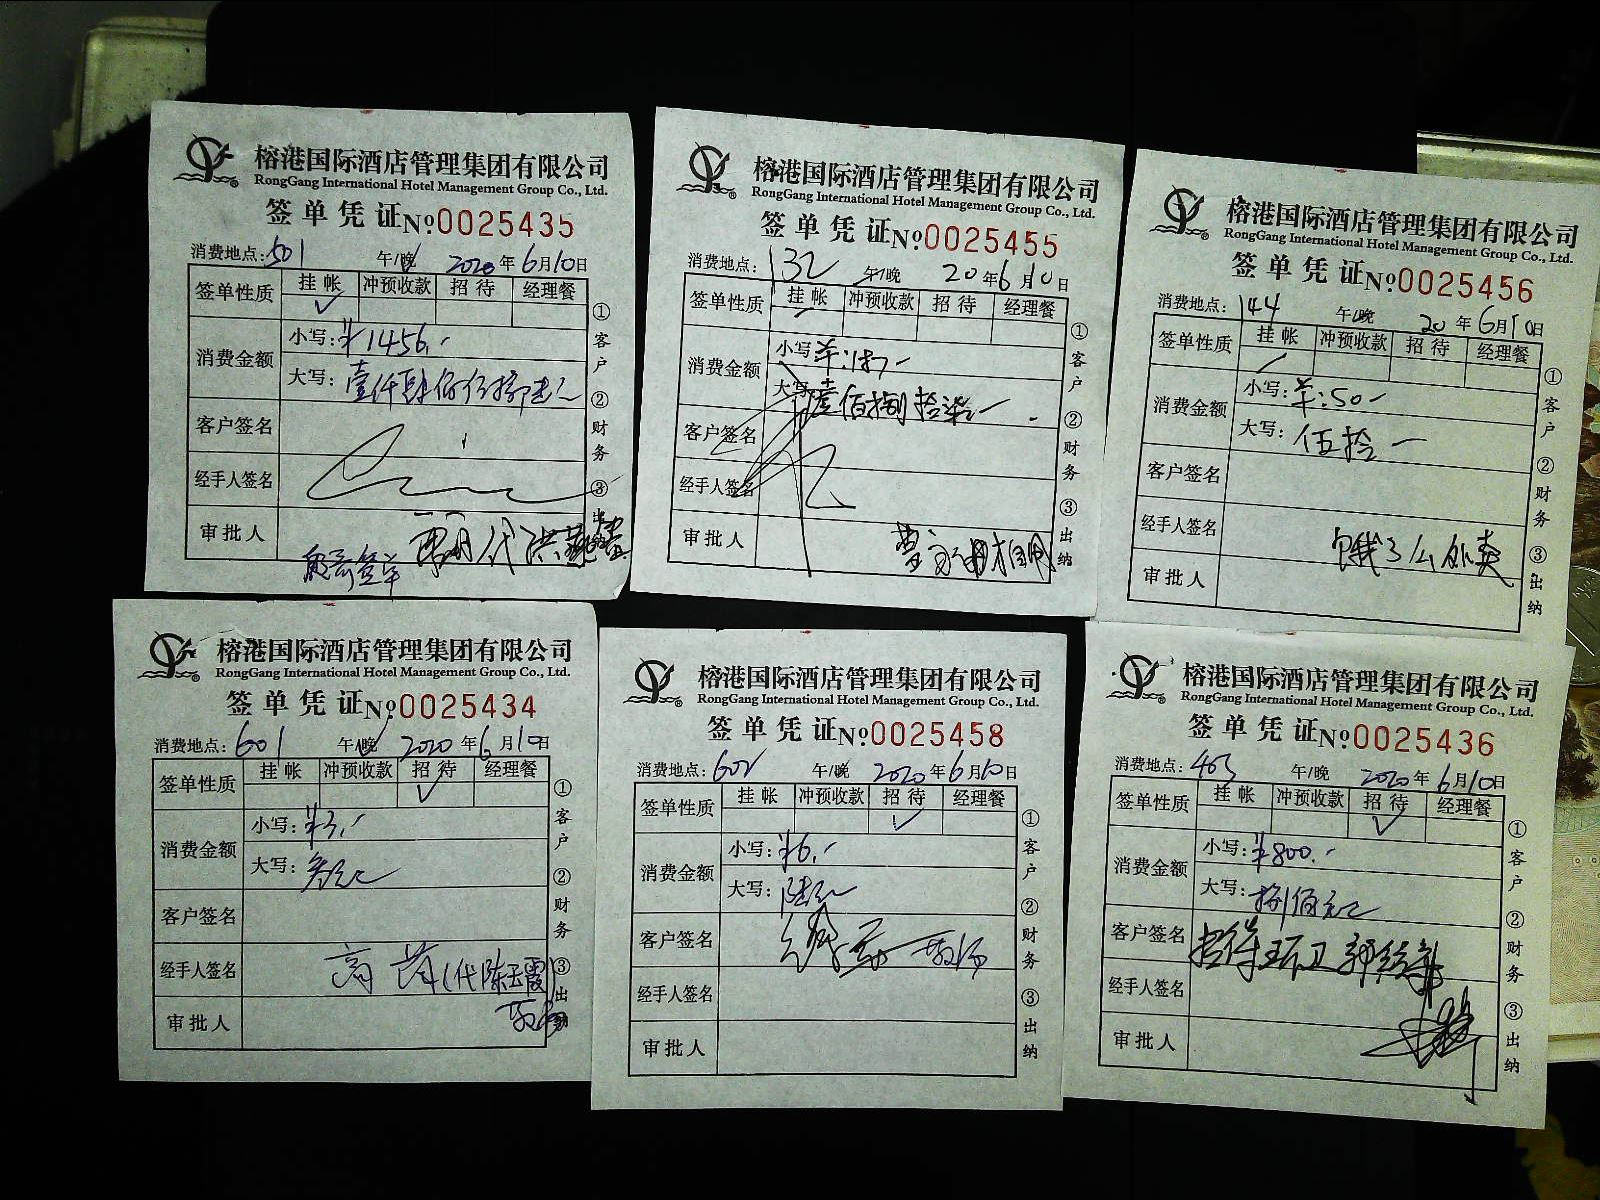 榕港国际酒店管理集团有限公司
RongGang International Hotel Management Group Co., Ltd.
签单凭证 №0025435
消费地点: 501 午/晚 2020年6月10日
签单性质 挂帐 冲预收款 招待 经理餐
✓
消费金额 小写: ¥1456.-
大写: 壹仟肆佰伍拾陆元
客户签名
经手人签名
审批人
签单 代洪
①客户 ②财务 ③出纳
榕港国际酒店管理集团有限公司
RongGang International Hotel Management Group Co., Ltd.
签单凭证 №0025455
消费地点: 132 午/晚 20年6月10日
签单性质 挂帐 冲预收款 招待 经理餐
消费金额 小写: ¥:187-
大写: 壹佰捌拾柒-
客户签名
经手人签名
审批人
①客户 ②财务 ③出纳
榕港国际酒店管理集团有限公司
RongGang International Hotel Management Group Co., Ltd.
签单凭证 №0025456
消费地点: 144 午/晚 20年6月10日
签单性质 挂帐 冲预收款 招待 经理餐
消费金额 小写: ¥:50-
大写: 伍拾-
客户签名
经手人签名
饿了么外卖
审批人
①客户 ②财务 ③出纳
榕港国际酒店管理集团有限公司
RongGang International Hotel Management Group Co., Ltd.
签单凭证 №0025434
消费地点: 601 午/晚 2020年6月10日
签单性质 挂帐 冲预收款 招待 经理餐
✓
消费金额 小写: ¥3.-
大写: 叁元
客户签名
经手人签名 高 (代陈玉霞)
审批人
①客户 ②财务 ③出纳
榕港国际酒店管理集团有限公司
RongGang International Hotel Management Group Co., Ltd.
签单凭证 №0025458
消费地点: 602 午/晚 2020年6月10日
签单性质 挂帐 冲预收款 招待 经理餐
✓
消费金额 小写: ¥6.-
大写: 陆元
客户签名
经手人签名
审批人
①客户 ②财务 ③出纳
榕港国际酒店管理集团有限公司
RongGang International Hotel Management Group Co., Ltd.
签单凭证 №0025436
消费地点: 405 午/晚 2020年6月10日
签单性质 挂帐 冲预收款 招待 经理餐
✓
消费金额 小写: ¥800.-
大写: 捌佰元
客户签名 招待环卫郭经理
经手人签名
审批人
①客户 ②财务 ③出纳